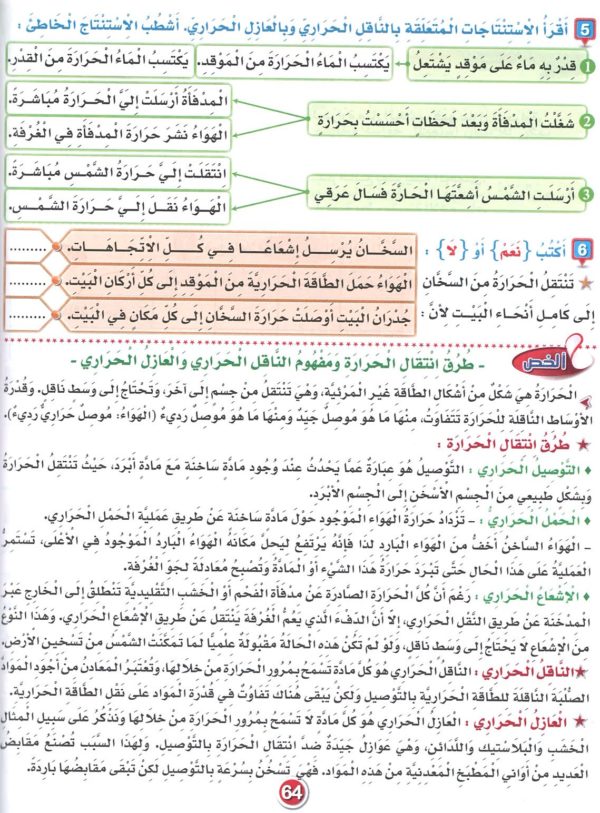 5 أَقْرَأُ الِاسْتِنْتَاجَاتِ الْمُتَعَلِّقَةِ بِالنَّاقِلِ الْحَرَارِيِّ وَبِالْعَازِلِ الْحَرَارِيِّ. أَشْطُبُ الِاسْتِنْتَاجَ الْخَاطِئَ :
1 قِدْرٌ بِهِ مَاءٌ عَلَى مَوْقِدٍ يَشْتَعِلُ
يَكْتَسِبُ الْمَاءُ الْحَرَارَةَ مِنَ الْمَوْقِدِ.
يَكْتَسِبُ الْمَاءُ الْحَرَارَةَ مِنَ الْقِدْرِ.
2 شَغَّلْتُ الْمِدْفَأَةَ وَبَعْدَ لَحَظَاتٍ أَحْسَسْتُ بِحَرَارَةٍ
الْمِدْفَأَةُ أَرْسَلَتْ إِلَيَّ الْحَرَارَةَ مُبَاشَرَةً.
الْهَوَاءُ نَشَرَ حَرَارَةَ الْمِدْفَأَةِ فِي الْغُرْفَةِ.
3 أَرْسَلَتِ الشَّمْسُ أَشِعَّتَهَا الْحَارَّةَ فَسَالَ عَرَقِي
اِنْتَقَلَتْ إِلَيَّ حَرَارَةُ الشَّمْسِ مُبَاشَرَةً.
الْهَوَاءُ نَقَلَ إِلَيَّ حَرَارَةَ الشَّمْسِ.
6 أَكْتُبُ {نَعَمْ} أَوْ {لَا} :
تَنْتَقِلُ الْحَرَارَةُ مِنَ السَّخَّانِ
إِلَى كَامِلِ أَنْحَاءِ الْبَيْتِ لِأَنَّ :
السَّخَّانُ يُرْسِلُ إِشْعَاعًا فِي كُلِّ الِاتِّجَاهَاتِ. .........
الْهَوَاءُ حَمَلَ الطَّاقَةَ الْحَرَارِيَّةَ مِنَ الْمَوْقِدِ إِلَى كُلِّ أَرْكَانِ الْبَيْتِ. .........
جُدْرَانُ الْبَيْتِ أَوْصَلَتْ حَرَارَةَ السَّخَّانِ إِلَى كُلِّ مَكَانٍ فِي الْبَيْتِ. .........
ألخص
- طُرُقُ انْتِقَالِ الْحَرَارَةِ وَمَفْهُومُ النَّاقِلِ الْحَرَارِي وَالْعَازِلِ الْحَرَارِي -
الْحَرَارَةُ هِيَ شَكْلٌ مِنْ أَشْكَالِ الطَّاقَةِ غَيْرِ الْمَرْئِيَّةِ، وَهِيَ تَنْتَقِلُ مِنْ جِسْمٍ إِلَى آخَرَ، وَتَحْتَاجُ إِلَى وَسَطٍ نَاقِلٍ. وَقُدْرَةُ
الْأَوْسَاطِ النَّاقِلَةِ لِلْحَرَارَةِ تَتَفَاوَتُ، مِنْهَا مَا هُوَ مُوصِلٌ جَيِّدٌ وَمِنْهَا مَا هُوَ مُوصِلٌ رَدِيءٌ (الْهَوَاءُ: مُوصِلٌ حَرَارِيٌّ رَدِيءٌ).
★ طُرُقُ انْتِقَالِ الْحَرَارَةِ :
♦ التَّوْصِيلُ الْحَرَارِي : التَّوْصِيلُ هُوَ عِبَارَةٌ عَمَّا يَحْدُثُ عِنْدَ وُجُودِ مَادَّةٍ سَاخِنَةٍ مَعَ مَادَّةٍ أَبْرَدَ، حَيْثُ تَنْتَقِلُ الْحَرَارَةُ
وَبِشَكْلٍ طَبِيعِيٍّ مِنَ الْجِسْمِ الْأَسْخَنِ إِلَى الْجِسْمِ الْأَبْرَدِ.
♦ الْحَمْلُ الْحَرَارِيُّ : - تَزْدَادُ حَرَارَةُ الْهَوَاءِ الْمَوْجُودِ حَوْلَ مَادَّةٍ سَاخِنَةٍ عَنْ طَرِيقِ عَمَلِيَّةِ الْحَمْلِ الْحَرَارِي.
- الْهَوَاءُ السَّاخِنُ أَخَفُّ مِنَ الْهَوَاءِ الْبَارِدِ لِذَا فَإِنَّهُ يَرْتَفِعُ لِيَحُلَّ مَكَانَهُ الْهَوَاءُ الْبَارِدُ الْمَوْجُودُ فِي الْأَعْلَى، تَسْتَمِرُّ
الْعَمَلِيَّةُ عَلَى هَذَا الْحَالِ حَتَّى تَبْرُدَ حَرَارَةُ هَذَا الشَّيْءِ أَوِ الْمَادَّةِ وَتُصْبِحَ مُعَادِلَةً لِجَوِّ الْغُرْفَةِ.
♦ الْإِشْعَاعُ الْحَرَارِي : رَغْمَ أَنَّ كُلَّ الْحَرَارَةِ الصَّادِرَةِ عَنْ مِدْفَأَةِ الْفَحْمِ أَوِ الْخَشَبِ التَّقْلِيدِيَّةِ تَنْطَلِقُ إِلَى الْخَارِجِ عَبْرَ
الْمِدْخَنَةِ عَنْ طَرِيقِ النَّقْلِ الْحَرَارِي، إِلَّا أَنَّ الدِّفْءَ الَّذِي يَعُمُّ الْغُرْفَةَ يَنْتَقِلُ عَنْ طَرِيقِ الْإِشْعَاعِ الْحَرَارِي. وَهَذَا النَّوْعُ
مِنَ الْإِشْعَاعِ لَا يَحْتَاجُ إِلَى وَسَطٍ نَاقِلٍ، وَلَوْ لَمْ تَكُنْ هَذِهِ الْحَالَةُ مَقْبُولَةً عِلْمِيًّا لَمَا تَمَكَّنَتِ الشَّمْسُ مِنْ تَسْخِينِ الْأَرْضِ.
★ النَّاقِلُ الْحَرَارِي : النَّاقِلُ الْحَرَارِي هُوَ كُلُّ مَادَّةٍ تَسْمَحُ بِمُرُورِ الْحَرَارَةِ مِنْ خِلَالِهَا، وَتُعْتَبَرُ الْمَعَادِنُ مِنْ أَجْوَدِ الْمَوَادِّ
الصُّلْبَةِ النَّاقِلَةِ لِلطَّاقَةِ الْحَرَارِيَّةِ بِالتَّوْصِيلِ وَلَكِنْ يَبْقَى هُنَاكَ تَفَاوُتٌ فِي قُدْرَةِ الْمَوَادِّ عَلَى نَقْلِ الطَّاقَةِ الْحَرَارِيَّةِ.
★ الْعَازِلُ الْحَرَارِي : الْعَازِلُ الْحَرَارِي هُوَ كُلُّ مَادَّةٍ لَا تَسْمَحُ بِمُرُورِ الْحَرَارَةِ مِنْ خِلَالِهَا وَنَذْكُرُ عَلَى سَبِيلِ الْمِثَالِ
الْخَشَبَ وَالْبْلَاسْتِيكَ وَاللَّدَائِنَ، وَهِيَ عَوَازِلُ جَيِّدَةٌ ضِدَّ انْتِقَالِ الْحَرَارَةِ بِالتَّوْصِيلِ. وَلِهَذَا السَّبَبِ تُصْنَعُ مَقَابِضُ
الْعَدِيدِ مِنْ أَوَانِي الْمَطْبَخِ الْمَعْدِنِيَّةِ مِنْ هَذِهِ الْمَوَادِّ. فَهْيَ تَسْخُنُ بِسُرْعَةٍ بِالتَّوْصِيلِ لَكِنْ تَبْقَى مَقَابِضُهَا بَارِدَةً.
64